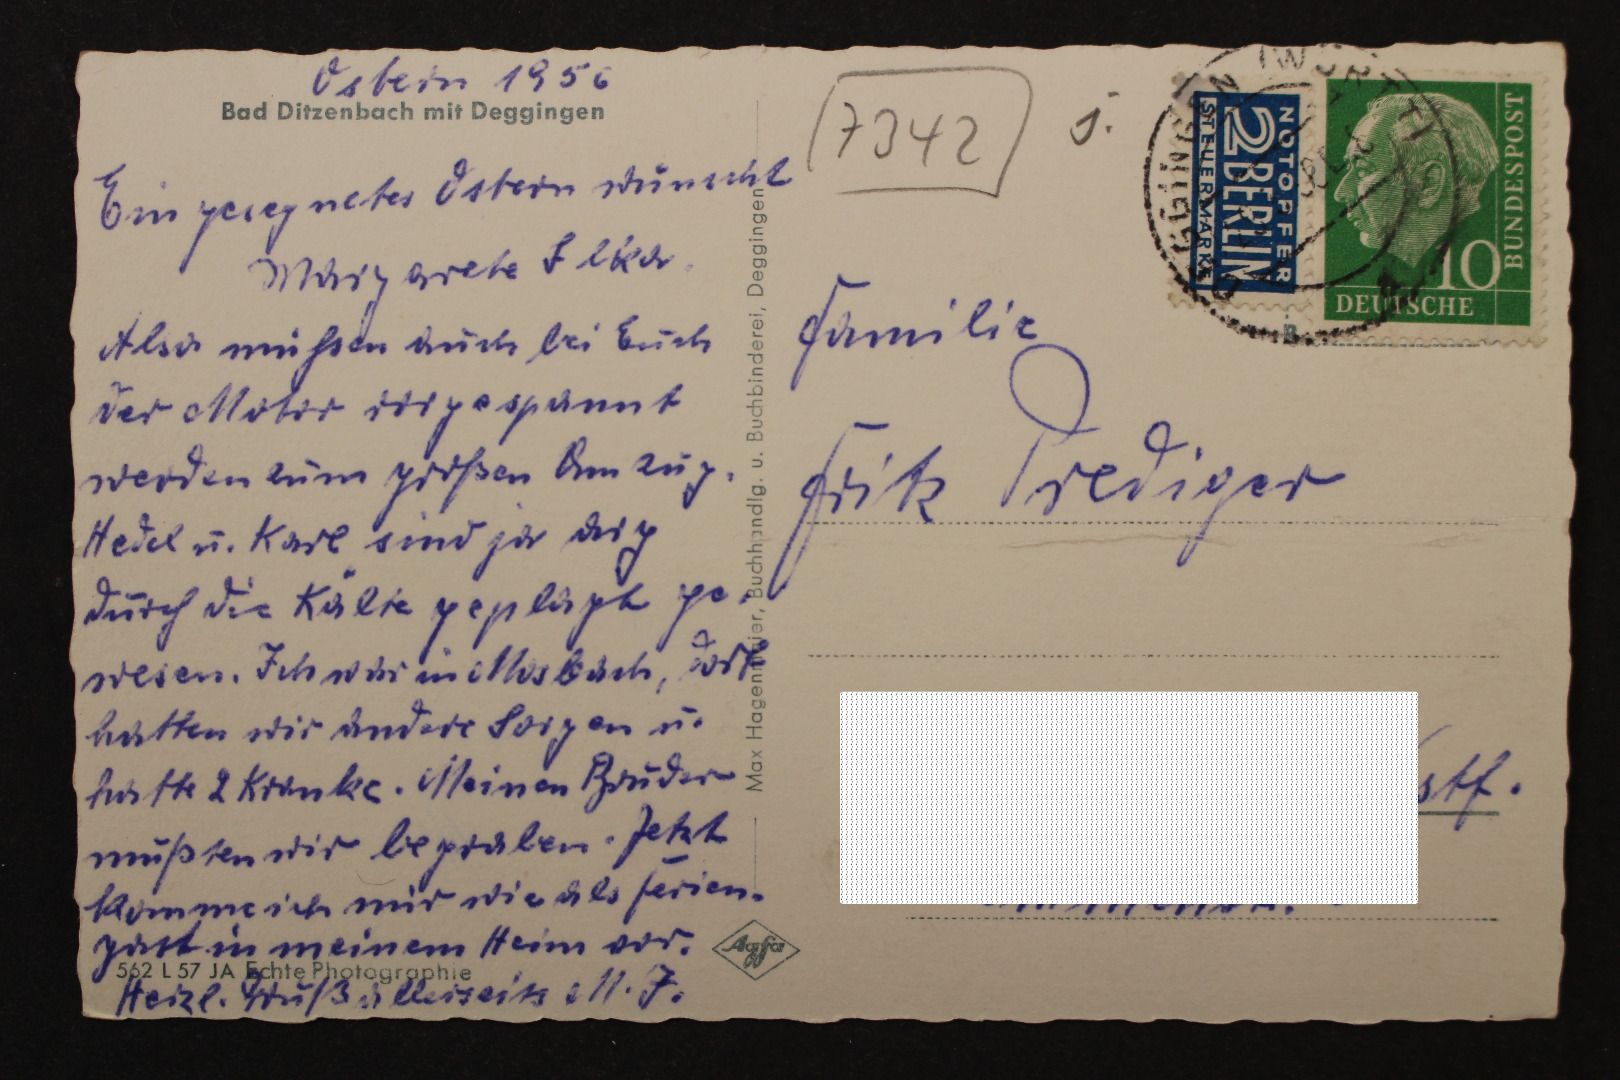 Ostern 1956
Bad Ditzenbach mit Deggingen
Ein gesegnetes Ostern wünscht
Margarete Ilka.
Also müssen auch bei Euch
der Motor vorgespannt
werden zum großen Umzug.
Hedel u. Karl sind ja arg
durch die Kälte geplagt ge-
wesen. Ich war in Mosbach, dort
hatten wir andere Sorgen u.
hatte 2 Kranke. Meinen Bruder
mußten wir begraben. Jetzt
komme ich mir wie als Ferien-
gast in meinem Heim vor.
562 L 57 JA Echte Photographie
Herzl. Gruß allerseits M. J.
Max Hagenmaier, Buchhandlg. u. Buchbinderei, Deggingen
Agfa
7342
NOTOPFER
2 BERLIN
STEUERMARKE
DEGGINGEN (WÜRTT)
10
DEUTSCHE
BUNDESPOST
Familie
Fritz Prediger
stf.